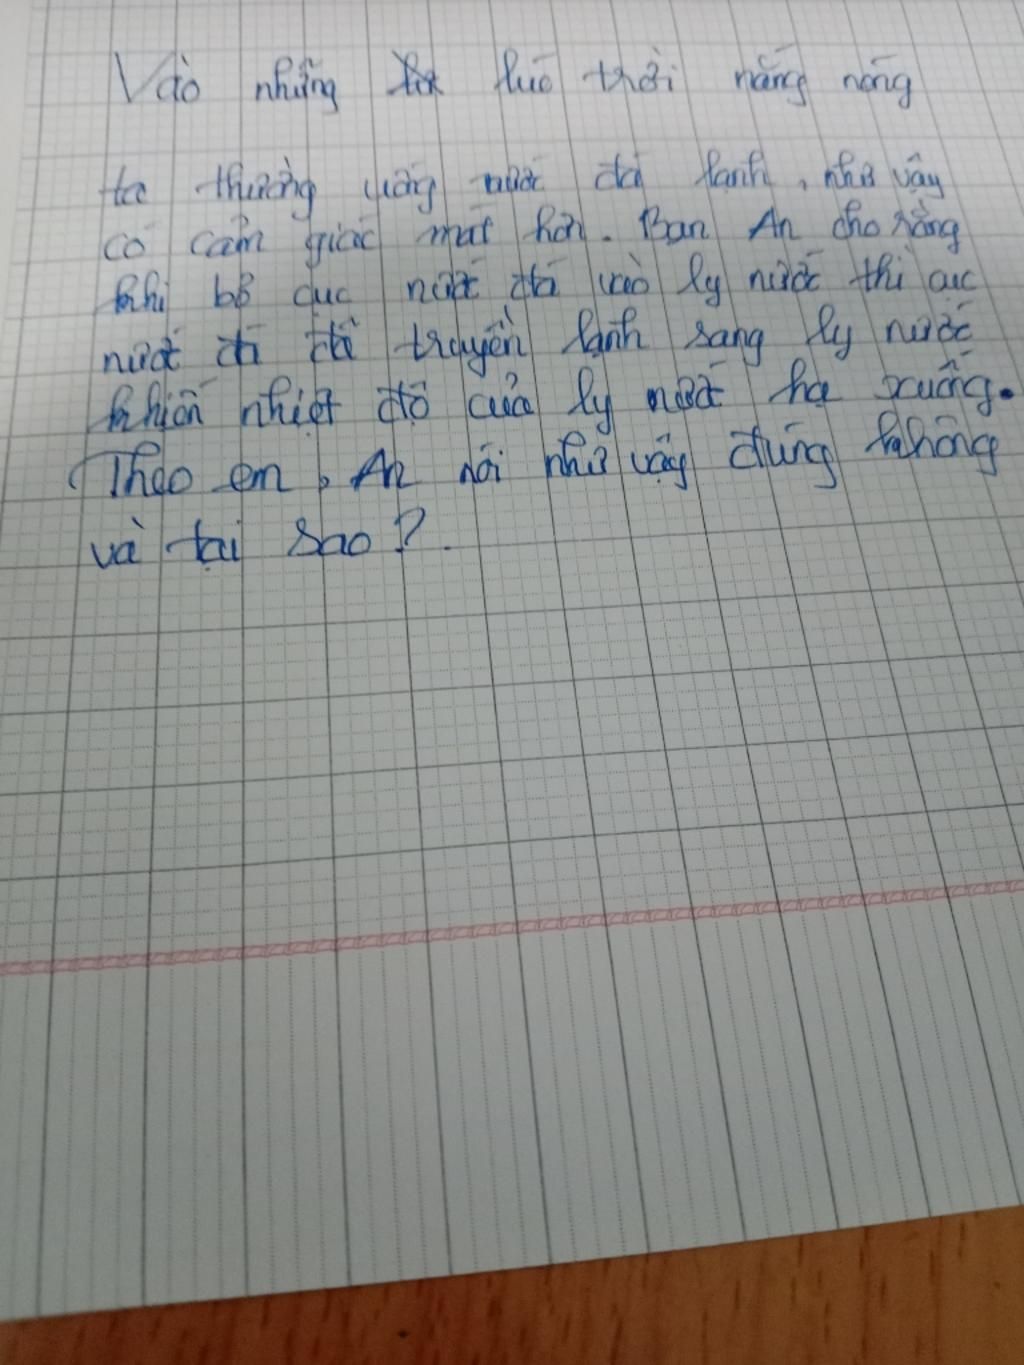 Vào những lúc trời nắng nóng
ta thường uống nước đá lạnh, như vậy
có cảm giác mát hơn. Bạn An cho rằng
khi bỏ cục nước đá vào ly nước thì cục
nước đá đã truyền lạnh sang ly nước
khiến nhiệt độ của ly nước hạ xuống.
Theo em, An nói như vậy đúng không
và tại sao?.